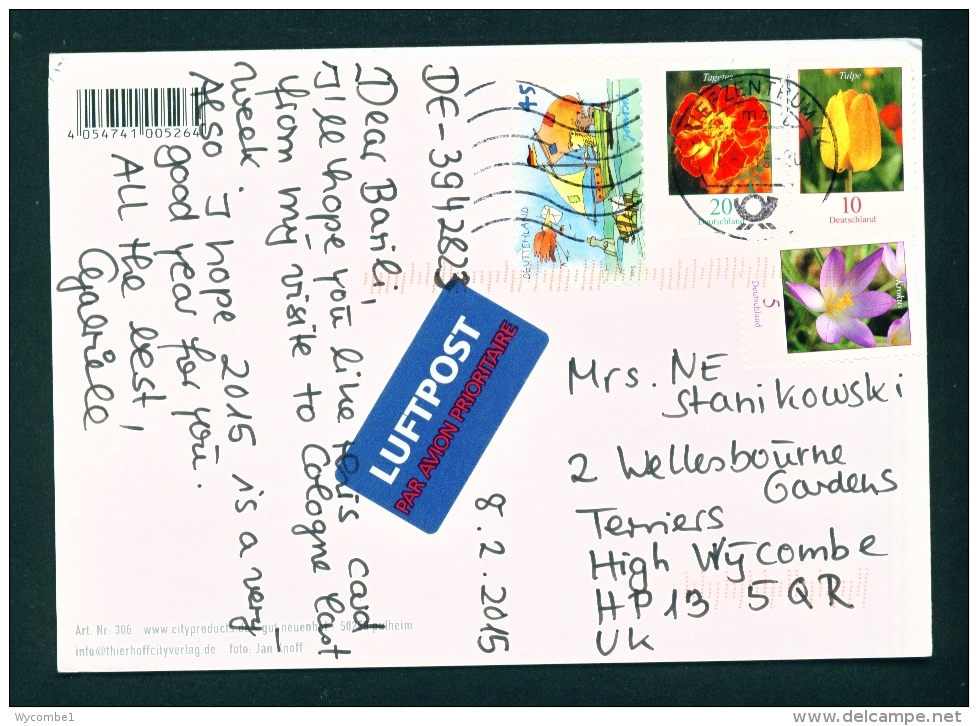 DE-3942823
Dear Barili,
I'll hope you like this card
from my visite to Cologne last
week. I hope 2015 is a very
Also I hope 2015 is a very
good year for you.
All the best,
Gabriele
8.2.2015
4 054741 005264
LUFTPOST
PAR AVION PRIORITAIRE
45
DEUTSCHLAND
Tagetes
20
Deutschland
Tulpe
10
Deutschland
Krokus
5
Deutschland
Mrs. NE
Stanikowski
2 Wellesbourne
Gardens
Terriers
High Wycombe
HP13 5QR
UK
Art. Nr: 306 - www.cityproducts.de - gut neuenhof - 50259 pulheim
info@thierhoffcityverlag.de - foto: Jan Knoff
Wycombe1